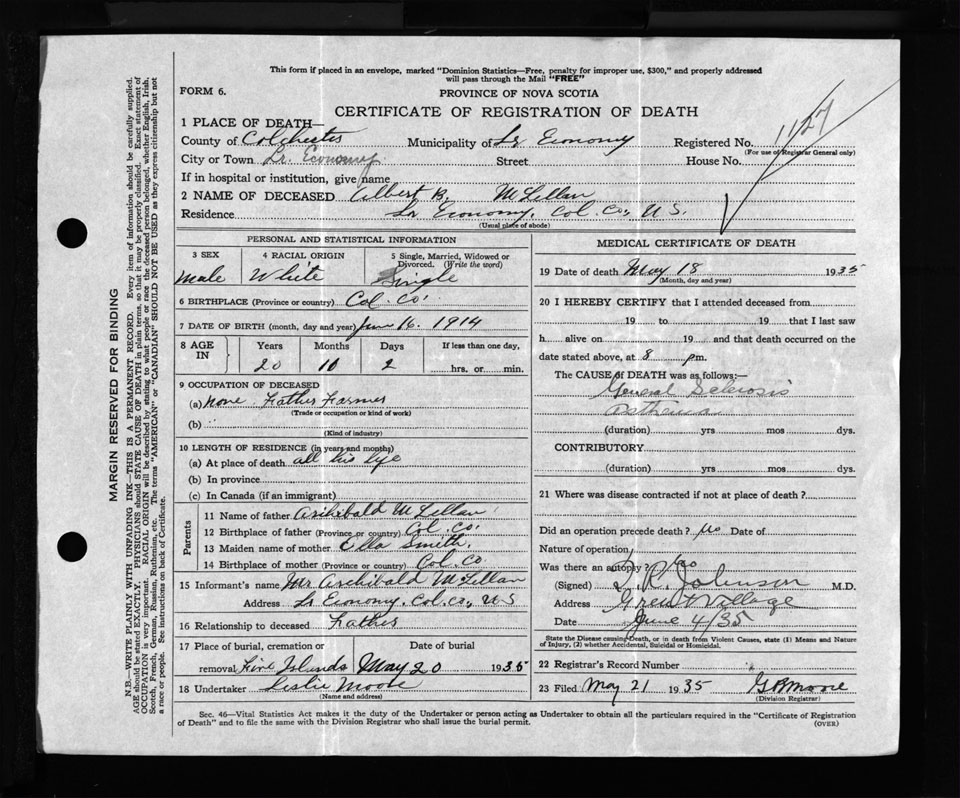 This form if placed in an envelope, marked "Dominion Statistics—Free, penalty for improper use, $300," and properly addressed
will pass through the Mail "FREE"
FORM 6.
PROVINCE OF NOVA SCOTIA
CERTIFICATE OF REGISTRATION OF DEATH
1127
1 PLACE OF DEATH—
County of Colchester Municipality of Lr Economy Registered No.
(For use of Registrar General only)
City or Town Lr. Economy Street House No.
If in hospital or institution, give name
2 NAME OF DECEASED Albert B. McLellan
Residence Lr Economy, Col. Co, N.S.
(Usual place of abode)
PERSONAL AND STATISTICAL INFORMATION
3 SEX 4 RACIAL ORIGIN 5 Single, Married, Widowed or Divorced. (Write the word)
male White Single
6 BIRTHPLACE (Province or country) Col. Co.
7 DATE OF BIRTH (month, day and year) June 16. 1914
8 AGE IN Years Months Days If less than one day,
20 10 2 hrs. or min.
9 OCCUPATION OF DECEASED
(a) none. Father Farmer
(Trade or occupation or kind of work)
(b)
(Kind of industry)
10 LENGTH OF RESIDENCE (in years and months)
(a) At place of death all his life
(b) In province
(c) In Canada (if an immigrant)
Parents
11 Name of father Archibald McLellan
12 Birthplace of father (Province or country) Col. Co.
13 Maiden name of mother Ella Smith.
14 Birthplace of mother (Province or country) Col. Co
15 Informant's name Mr Archibald McLellan
Address Lr Economy. Col. Co, N S
16 Relationship to deceased Father
17 Place of burial, cremation or Date of burial
removal Five Islands May 20 1935
18 Undertaker Leslie Moore
(Name and address)
MEDICAL CERTIFICATE OF DEATH
19 Date of death May 18 1935
(Month, day and year)
20 I HEREBY CERTIFY that I attended deceased from
19 to 19 that I last saw
h alive on 19 and that death occurred on the
date stated above, at 8 p.m.
The CAUSE OF DEATH was as follows:—
General Sclerosis
Asthenia
(duration) yrs mos dys.
CONTRIBUTORY
(duration) yrs mos dys.
21 Where was disease contracted if not at place of death?
Did an operation precede death? No Date of
Nature of operation
Was there an autopsy? No
(Signed) Johnson M.D.
Address Great Village
Date June 4/35
State the Disease causing Death, or in death from Violent Causes, state (1) Means and Nature
of Injury, (2) whether Accidental, Suicidal or Homicidal.
22 Registrar's Record Number
23 Filed May 21 1935 G B Moore
(Division Registrar)
Sec. 46—Vital Statistics Act makes it the duty of the Undertaker or person acting as Undertaker to obtain all the particulars required in the "Certificate of Registration
of Death" and to file the same with the Division Registrar who shall issue the burial permit.
(OVER)
MARGIN RESERVED FOR BINDING
N.B.—WRITE PLAINLY WITH UNFADING INK—THIS IS A PERMANENT RECORD. Every item of information should be carefully supplied.
AGE should be stated EXACTLY. PHYSICIANS should STATE CAUSE OF DEATH in plain terms, so that it may be properly classified. Exact statement of
OCCUPATION is very important. RACIAL ORIGIN will be described by stating to what people or race the deceased person belonged, whether English, Irish,
Scotch, French, German, Russian, Ruthenian, etc. The terms "AMERICAN" or "CANADIAN" SHOULD NOT BE USED as they express citizenship but not
a race or people. See instructions on back of Certificate.